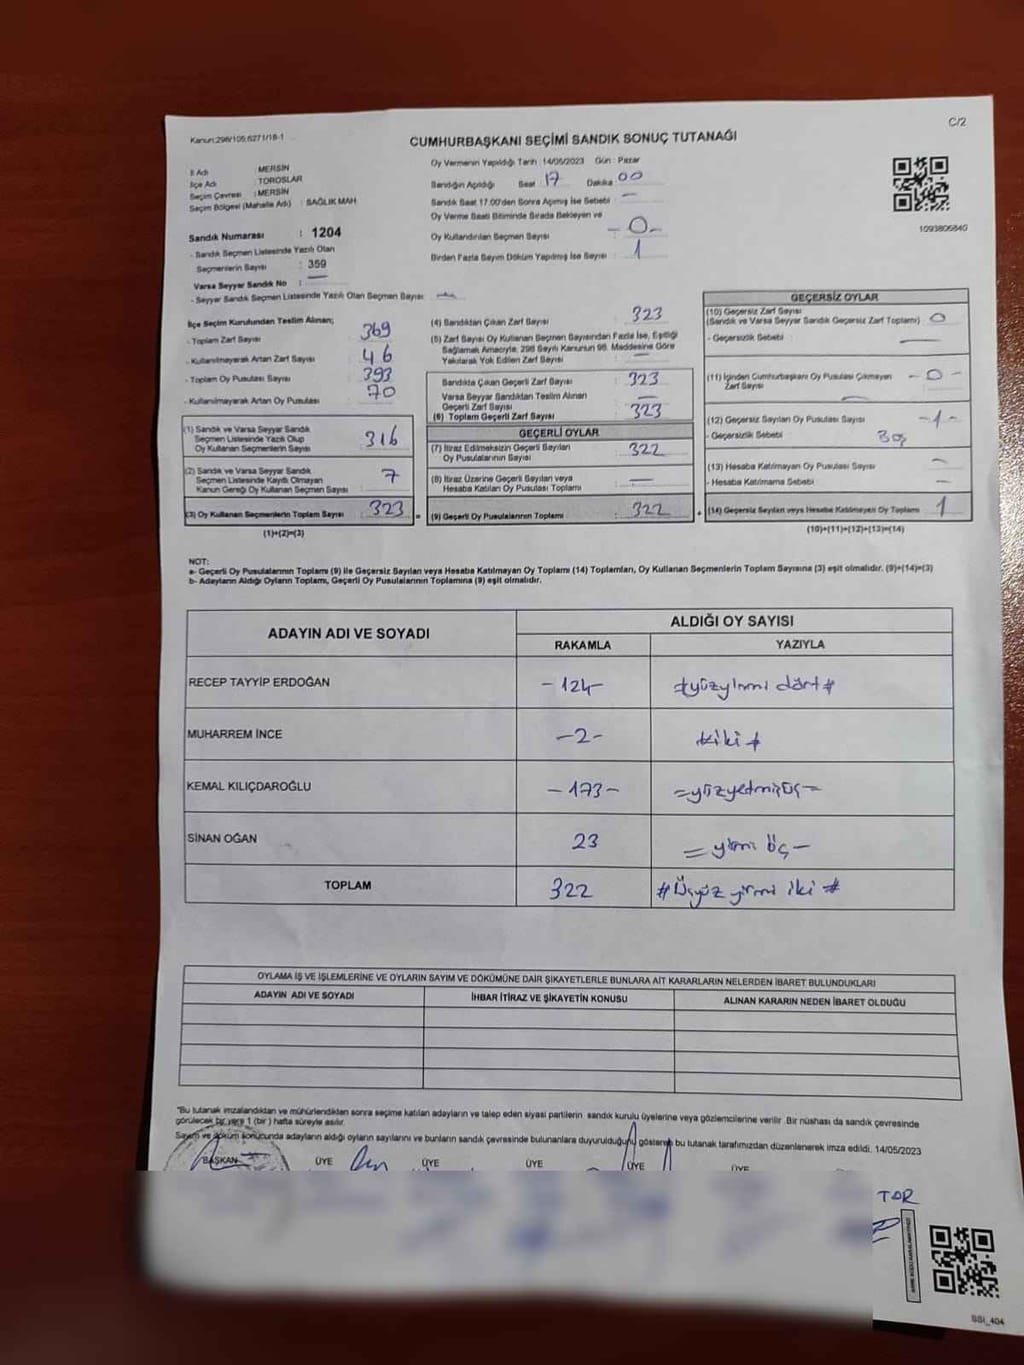 Kanun:298/105;6271/18-1
C/2
CUMHURBAŞKANI SEÇİMİ SANDIK SONUÇ TUTANAĞI
İl Adı : MERSİN
İlçe Adı : TOROSLAR
Seçim Çevresi : MERSİN
Seçim Bölgesi (Mahalle Adı) : SAĞLIK MAH
Sandık Numarası : 1204
- Sandık Seçmen Listesinde Yazılı Olan
Seçmenlerin Sayısı : 359
Varsa Seyyar Sandık No : —
- Seyyar Sandık Seçmen Listesinde Yazılı Olan Seçmen Sayısı : —
Oy Vermenin Yapıldığı Tarih : 14/05/2023 Gün : Pazar
Sandığın Açıldığı Saat : 17 Dakika : 00
Sandık Saat 17:00'den Sonra Açılmış İse Sebebi : —
Oy Verme Saati Bitiminde Sırada Bekleyen ve
Oy Kullandırılan Seçmen Sayısı : -0-
Birden Fazla Sayım Döküm Yapılmış İse Sayısı : 1
1093806840
İlçe Seçim Kurulundan Teslim Alınan;
- Toplam Zarf Sayısı : 369
- Kullanılmayarak Artan Zarf Sayısı : 46
- Toplam Oy Pusulası Sayısı : 393
- Kullanılmayarak Artan Oy Pusulası : 70
(1) Sandık ve Varsa Seyyar Sandık
Seçmen Listesinde Yazılı Olup
Oy Kullanan Seçmenlerin Sayısı : 316
(2) Sandık ve Varsa Seyyar Sandık
Seçmen Listesinde Kayıtlı Olmayan
Kanun Gereği Oy Kullanan Seçmen Sayısı : 7
(3) Oy Kullanan Seçmenlerin Toplam Sayısı : 323
(1)+(2)=(3)
(4) Sandıktan Çıkan Zarf Sayısı : 323
(5) Zarf Sayısı Oy Kullanan Seçmen Sayısından Fazla İse, Eşitliği
Sağlamak Amacıyla, 298 Sayılı Kanunun 98. Maddesine Göre
Yakılarak Yok Edilen Zarf Sayısı : —
Sandıkta Çıkan Geçerli Zarf Sayısı : 323
Varsa Seyyar Sandıktan Teslim Alınan
Geçerli Zarf Sayısı : —
(6) Toplam Geçerli Zarf Sayısı : 323
GEÇERLİ OYLAR
(7) İtiraz Edilmeksizin Geçerli Sayılan
Oy Pusulalarının Sayısı : 322
(8) İtiraz Üzerine Geçerli Sayılan veya
Hesaba Katılan Oy Pusulası Toplamı : —
= (9) Geçerli Oy Pusulalarının Toplamı : 322 +
GEÇERSİZ OYLAR
(10) Geçersiz Zarf Sayısı
(Sandık ve Varsa Seyyar Sandık Geçersiz Zarf Toplamı) : 0
- Geçersizlik Sebebi : —
(11) İçinden Cumhurbaşkanı Oy Pusulası Çıkmayan
Zarf Sayısı : -0-
(12) Geçersiz Sayılan Oy Pusulası Sayısı : -1-
- Geçersizlik Sebebi : Boş
(13) Hesaba Katılmayan Oy Pusulası Sayısı : —
- Hesaba Katılmama Sebebi : —
(14) Geçersiz Sayılan veya Hesaba Katılmayan Oy Toplamı : 1
(10)+(11)+(12)+(13)=(14)
NOT:
a- Geçerli Oy Pusulalarının Toplamı (9) ile Geçersiz Sayılan veya Hesaba Katılmayan Oy Toplamı (14) Toplamları, Oy Kullanan Seçmenlerin Toplam Sayısına (3) eşit olmalıdır. (9)+(14)=(3)
b- Adayların Aldığı Oyların Toplamı, Geçerli Oy Pusulalarının Toplamına (9) eşit olmalıdır.
ADAYIN ADI VE SOYADI ALDIĞI OY SAYISI
RAKAMLA YAZIYLA
RECEP TAYYİP ERDOĞAN -124- #yüzyirmi dört#
MUHARREM İNCE -2- #iki#
KEMAL KILIÇDAROĞLU -173- =yüzyetmişüç=
SİNAN OĞAN 23 =yirmi üç-
TOPLAM 322 #Üçyüz yirmi iki#
OYLAMA İŞ VE İŞLEMLERİNE VE OYLARIN SAYIM VE DÖKÜMÜNE DAİR ŞİKAYETLERLE BUNLARA AİT KARARLARIN NELERDEN İBARET BULUNDUKLARI
ADAYIN ADI VE SOYADI İHBAR İTİRAZ VE ŞİKAYETİN KONUSU ALINAN KARARIN NEDEN İBARET OLDUĞU
"Bu tutanak imzalandıktan ve mühürlendikten sonra seçime katılan adayların ve talep eden siyasi partilerin sandık kurulu üyelerine veya gözlemcilerine verilir. Bir nüshası da sandık çevresinde
görülecek bir yere 1 (bir) hafta süreyle asılır.
Sayım ve döküm sonucunda adayların aldığı oyların sayılarını ve bunların sandık çevresinde bulunanlara duyurulduğunu gösteren bu tutanak tarafımızdan düzenlenerek imza edildi. 14/05/2023
BAŞKAN ÜYE ÜYE ÜYE ÜYE ÜYE
SSI_404